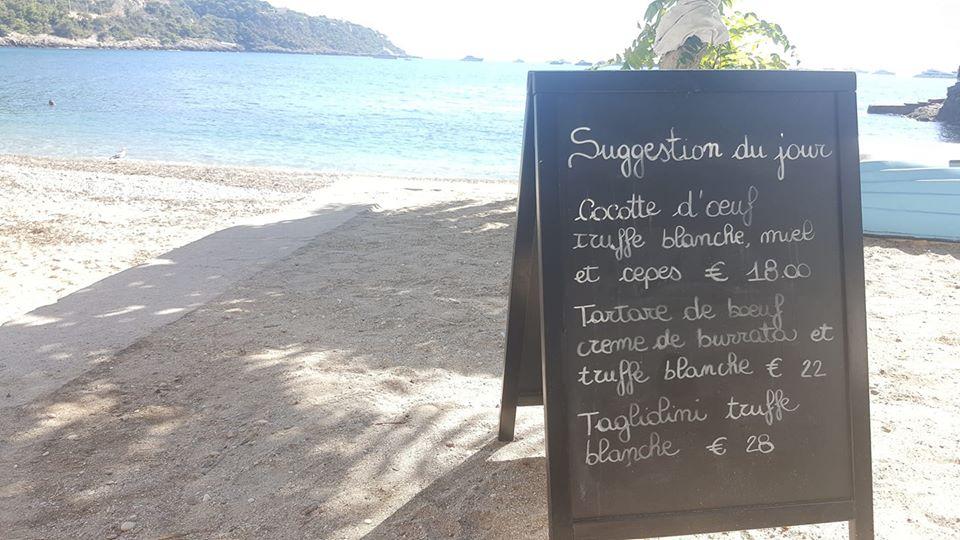 Suggestion du jour
Cocotte d'oeuf
truffe blanche, miel
et cepes € 18.00
Tartare de boeuf
creme de burrata et
truffe blanche € 22
Tagliolini truffe
blanche € 28